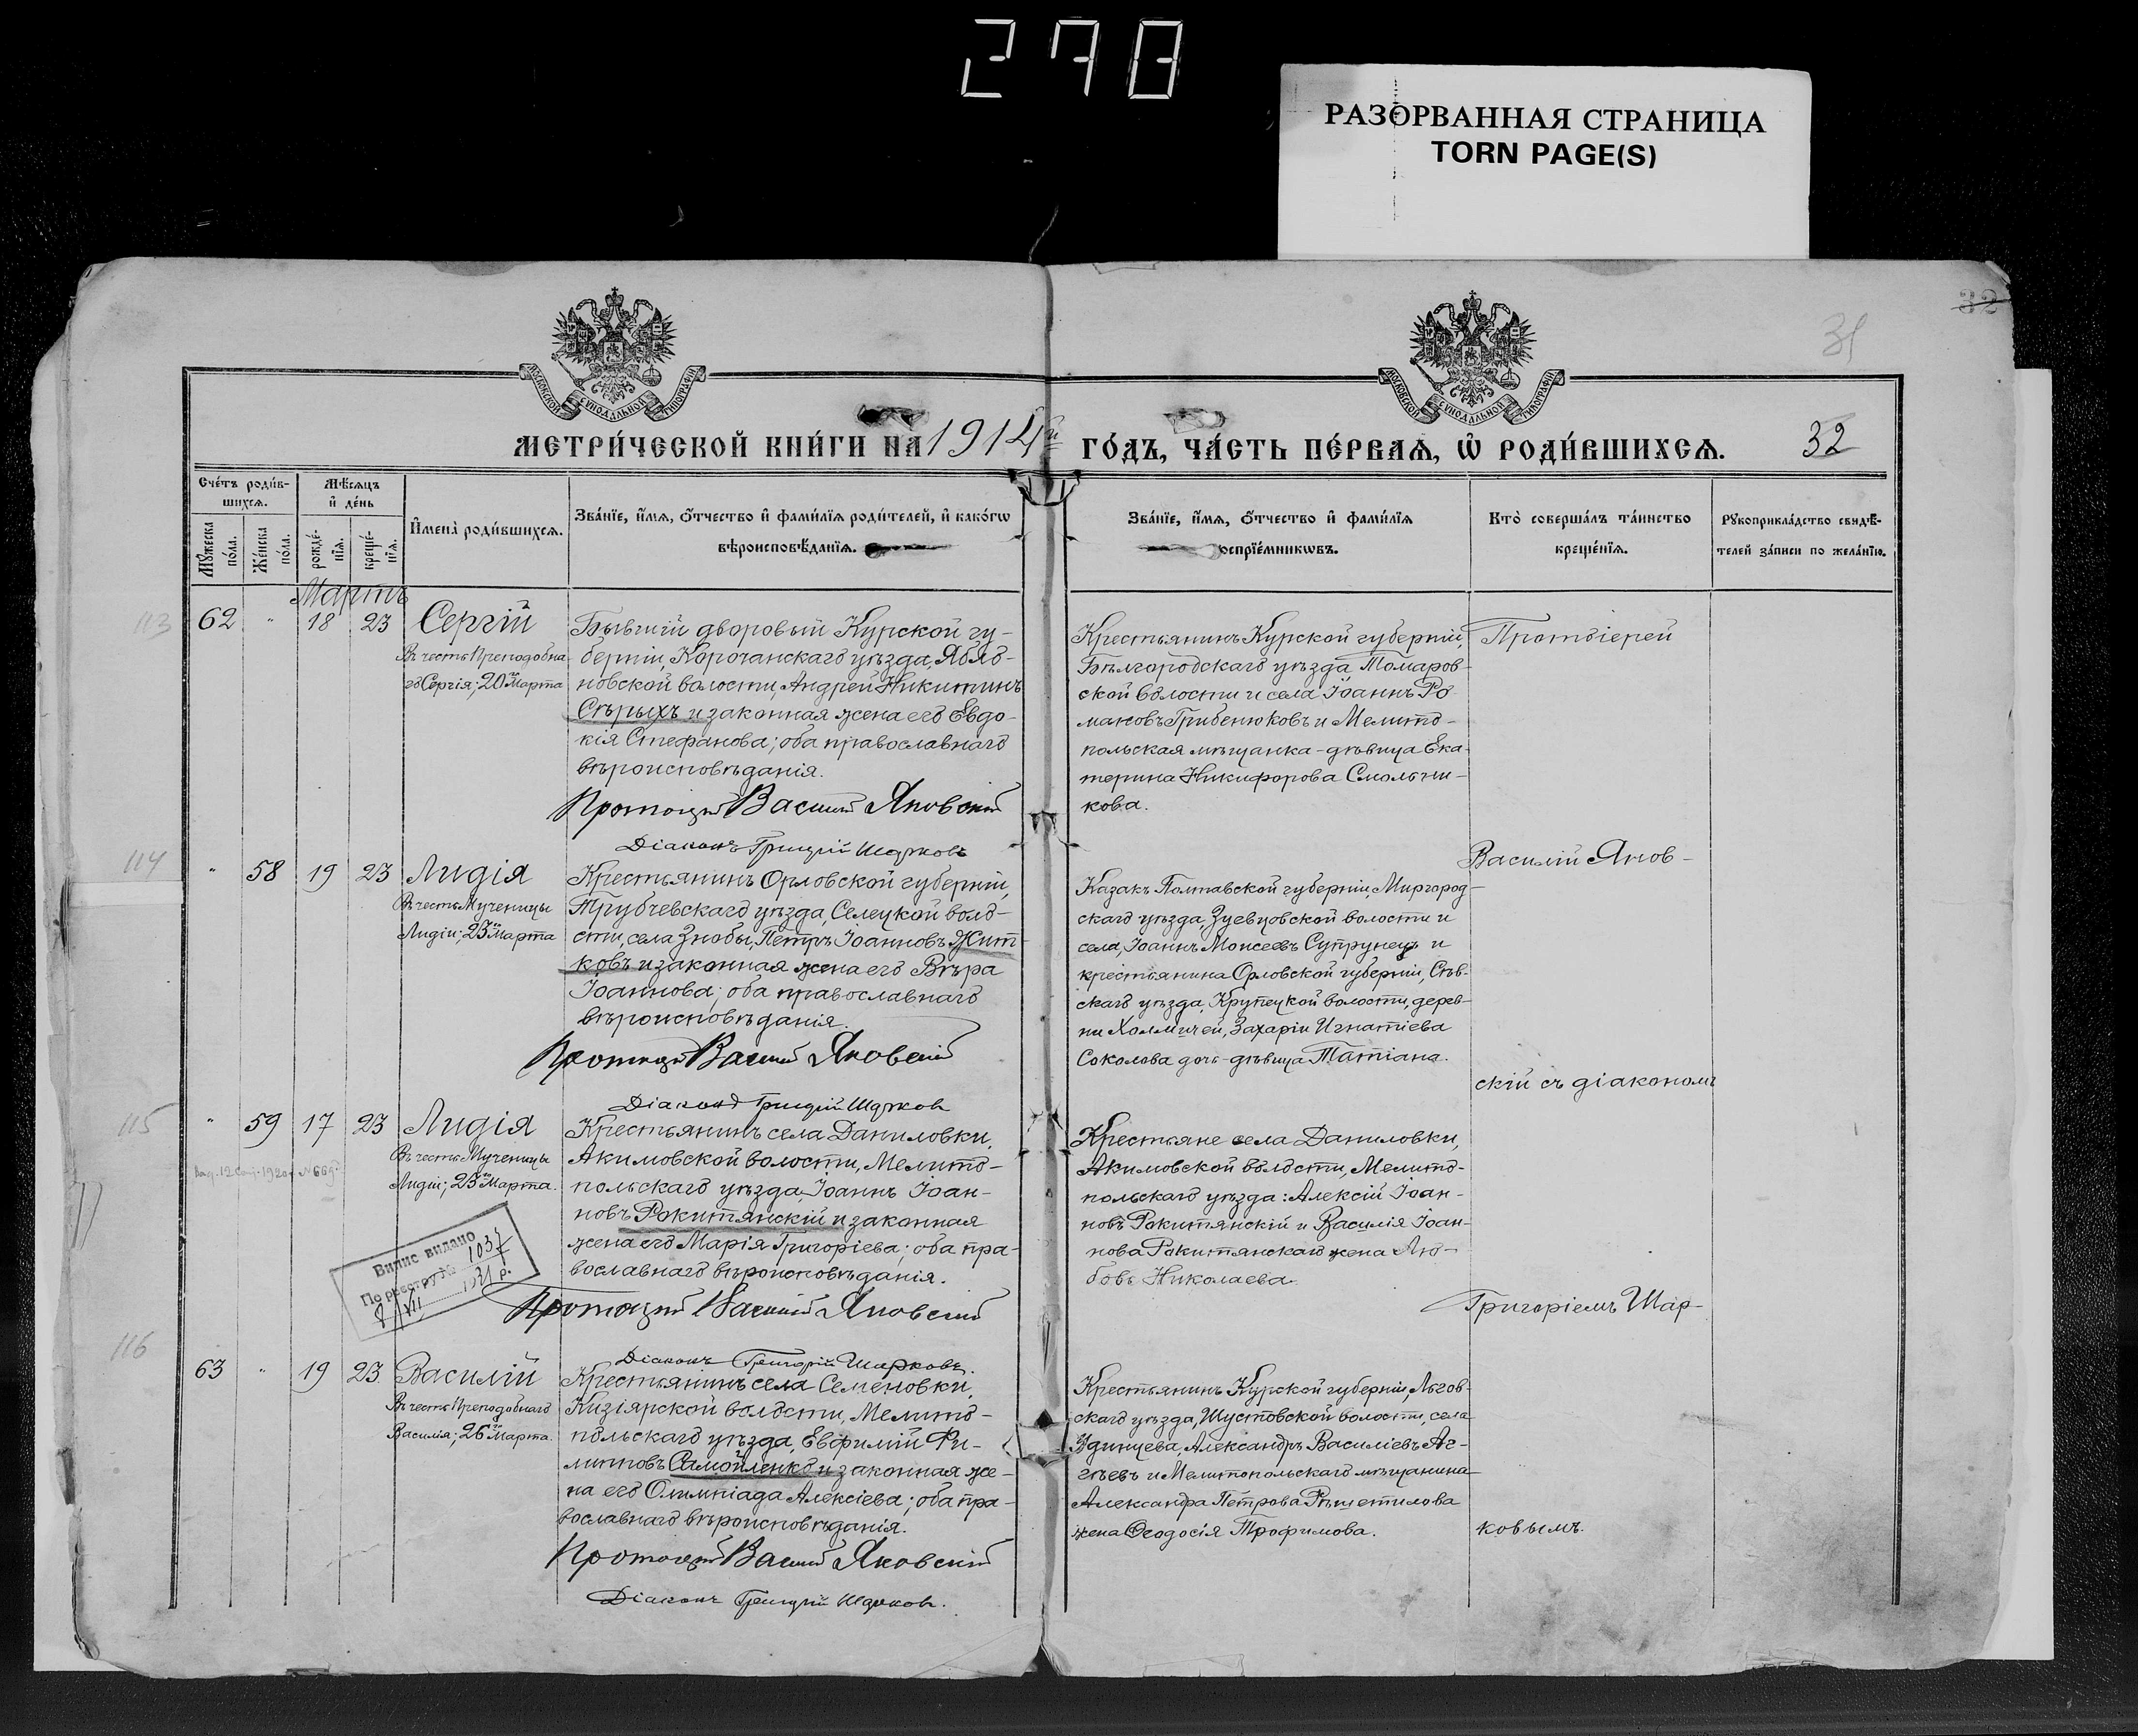 278
РАЗОРВАННАЯ СТРАНИЦА
TORN PAGE(S)
32
31
МОСКОВСКОЙ СѴНОДАЛЬНОЙ ТИПОГРАФІИ
МОСКОВСКОЙ СѴНОДАЛЬНОЙ ТИПОГРАФІИ
МЕТРИ́ЧЕСКОЙ КНИ́ГИ НА 1914й ГО́ДЪ, ЧА́СТЬ ПЕ́РВАѦ, Ѡ҆ РОДИ́ВШИХСѦ. 32
Сче́тъ роди́в-
шихсѧ.
Мꙋжеска
по́ла.
Же́нска
по́ла.
Мѣ́сѧцъ
и҆ де́нь
рожде́-
нїѧ.
креще́-
нїѧ.
И҆мена̀ роди́вшихсѧ.
Зва́нїе, и҆́мѧ, ѻ҆́тчество и҆ фами́лїѧ роди́телей, и҆ како́гѡ
вѣроисповѣ́данїѧ.
Зва́нїе, и҆́мѧ, ѻ҆́тчество и҆ фами́лїѧ
оспрїе́мникѡвъ.
Кто̀ соверша́лъ та́инство
креще́нїѧ.
Рꙋкоприкла́дство свидѣ́-
телей за́писи по жела́нїю.
Мартъ
113
62 " 18 23 Сергій
Въ честь Преподобна-
го Сергія; 20го Марта
Бывшій дворовый Курской гу-
берніи, Корочанскаго уѣзда, Ябло-
новской волости, Андрей Никитинъ
Сѣрыхъ и законная жена его Евдо-
кія Стефанова; оба православнаго
вѣроисповѣданія.
Протоіерей Василій Яновскій
Діаконъ Григорій Шарковъ
Крестьянинъ Курской губерніи,
Бѣлгородскаго уѣзда, Томаров-
ской волости и села Іоаннъ Ро-
мановъ Грибенюковъ и Мелито-
польская мѣщанка-дѣвица Ека-
терина Никифорова Смольни-
кова.
Протоіерей
114
" 58 19 23 Лидія
Въ честь Мученицы
Лидіи; 23го Марта
Крестьянинъ Орловской губерніи,
Трубчевскаго уѣзда, Селецкой воло-
сти, села Знобы, Петръ Іоанновъ Жит-
ковъ и законная жена его Вѣра
Іоаннова; оба православнаго
вѣроисповѣданія.
Протоіерей Василій Яновскій
Діаконъ Григорій Шарковъ
Казакъ Полтавской губерніи, Миргород-
скаго уѣзда, Зуевцовской волости и
села, Іоаннъ Моисеевъ Супрунецъ и
крестьянина Орловской губерніи, Сѣв-
скаго уѣзда, Крупецкой волости, дерев-
ни Холмичей, Захаріи Игнатіева
Соколова дочь-дѣвица Татіана.
Василій Янов-
скій съ діакономъ
115
" 59 17 23 Лидія
Въ честь Мученицы
Лидіи; 23го Марта.
Крестьянинъ села Даниловки,
Акимовской волости, Мелито-
польскаго уѣзда, Іоаннъ Іоан-
новъ Рокитянскій и законная
жена его Марія Григоріева; оба пра-
вославнаго вѣроисповѣданія.
Протоіерей Василій Яновскій
Діаконъ Григорій Шарковъ.
Випис видано
По реестру № 1037
8/VII 1931 р.
Крестьяне села Даниловки,
Акимовской волости, Мелито-
польскаго уѣзда: Алексій Іоан-
новъ Рокитянскій и Василія Іоан-
нова Рокитянскаго жена Лю-
бовь Николаева.
Григоріемъ Шар-
116
63 " 19 23 Василій
Въ честь Преподобнаго
Василія; 26го Марта.
Крестьянинъ села Семеновки,
Кизіярской волости, Мелито-
польскаго уѣзда, Евфимій Фи-
липповъ Самойленко и законная же-
на его Олимпіада Алексіева; оба пра-
вославнаго вѣроисповѣданія.
Протоіерей Василій Яновскій
Діаконъ Григорій Шарковъ.
Крестьянинъ Курской губерніи, Льгов-
скаго уѣзда, Шустовской волости, села
Удинцева, Александръ Василіевъ Аг-
гѣевъ и Мелитопольскаго мѣщанина
Александра Петрова Рѣшетилова
жена Ѳеодосія Трофимова.
ковымъ.